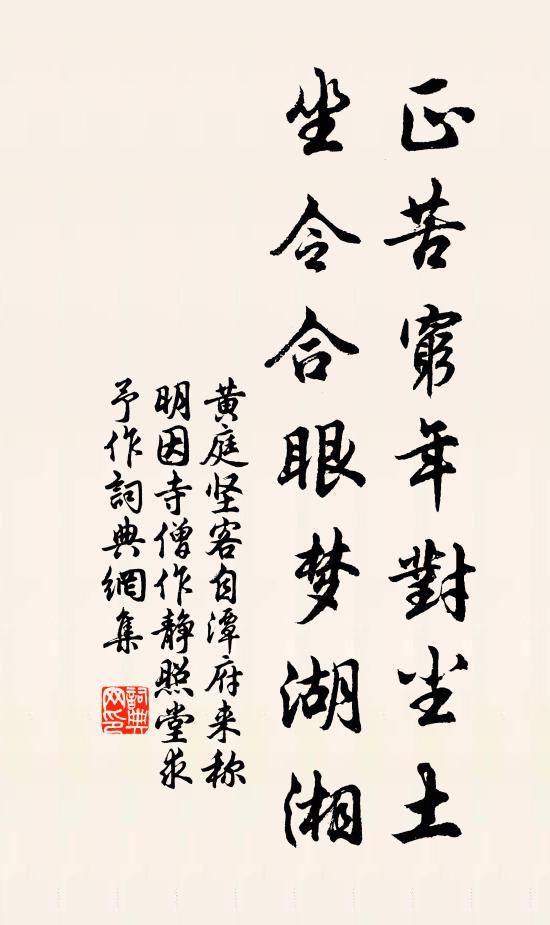 正苦窮年對尘土
坐令合眼梦湖湘
黄庭坚客自潭府来称
明因寺僧作静照堂求
予作詞典網集
詞典网印